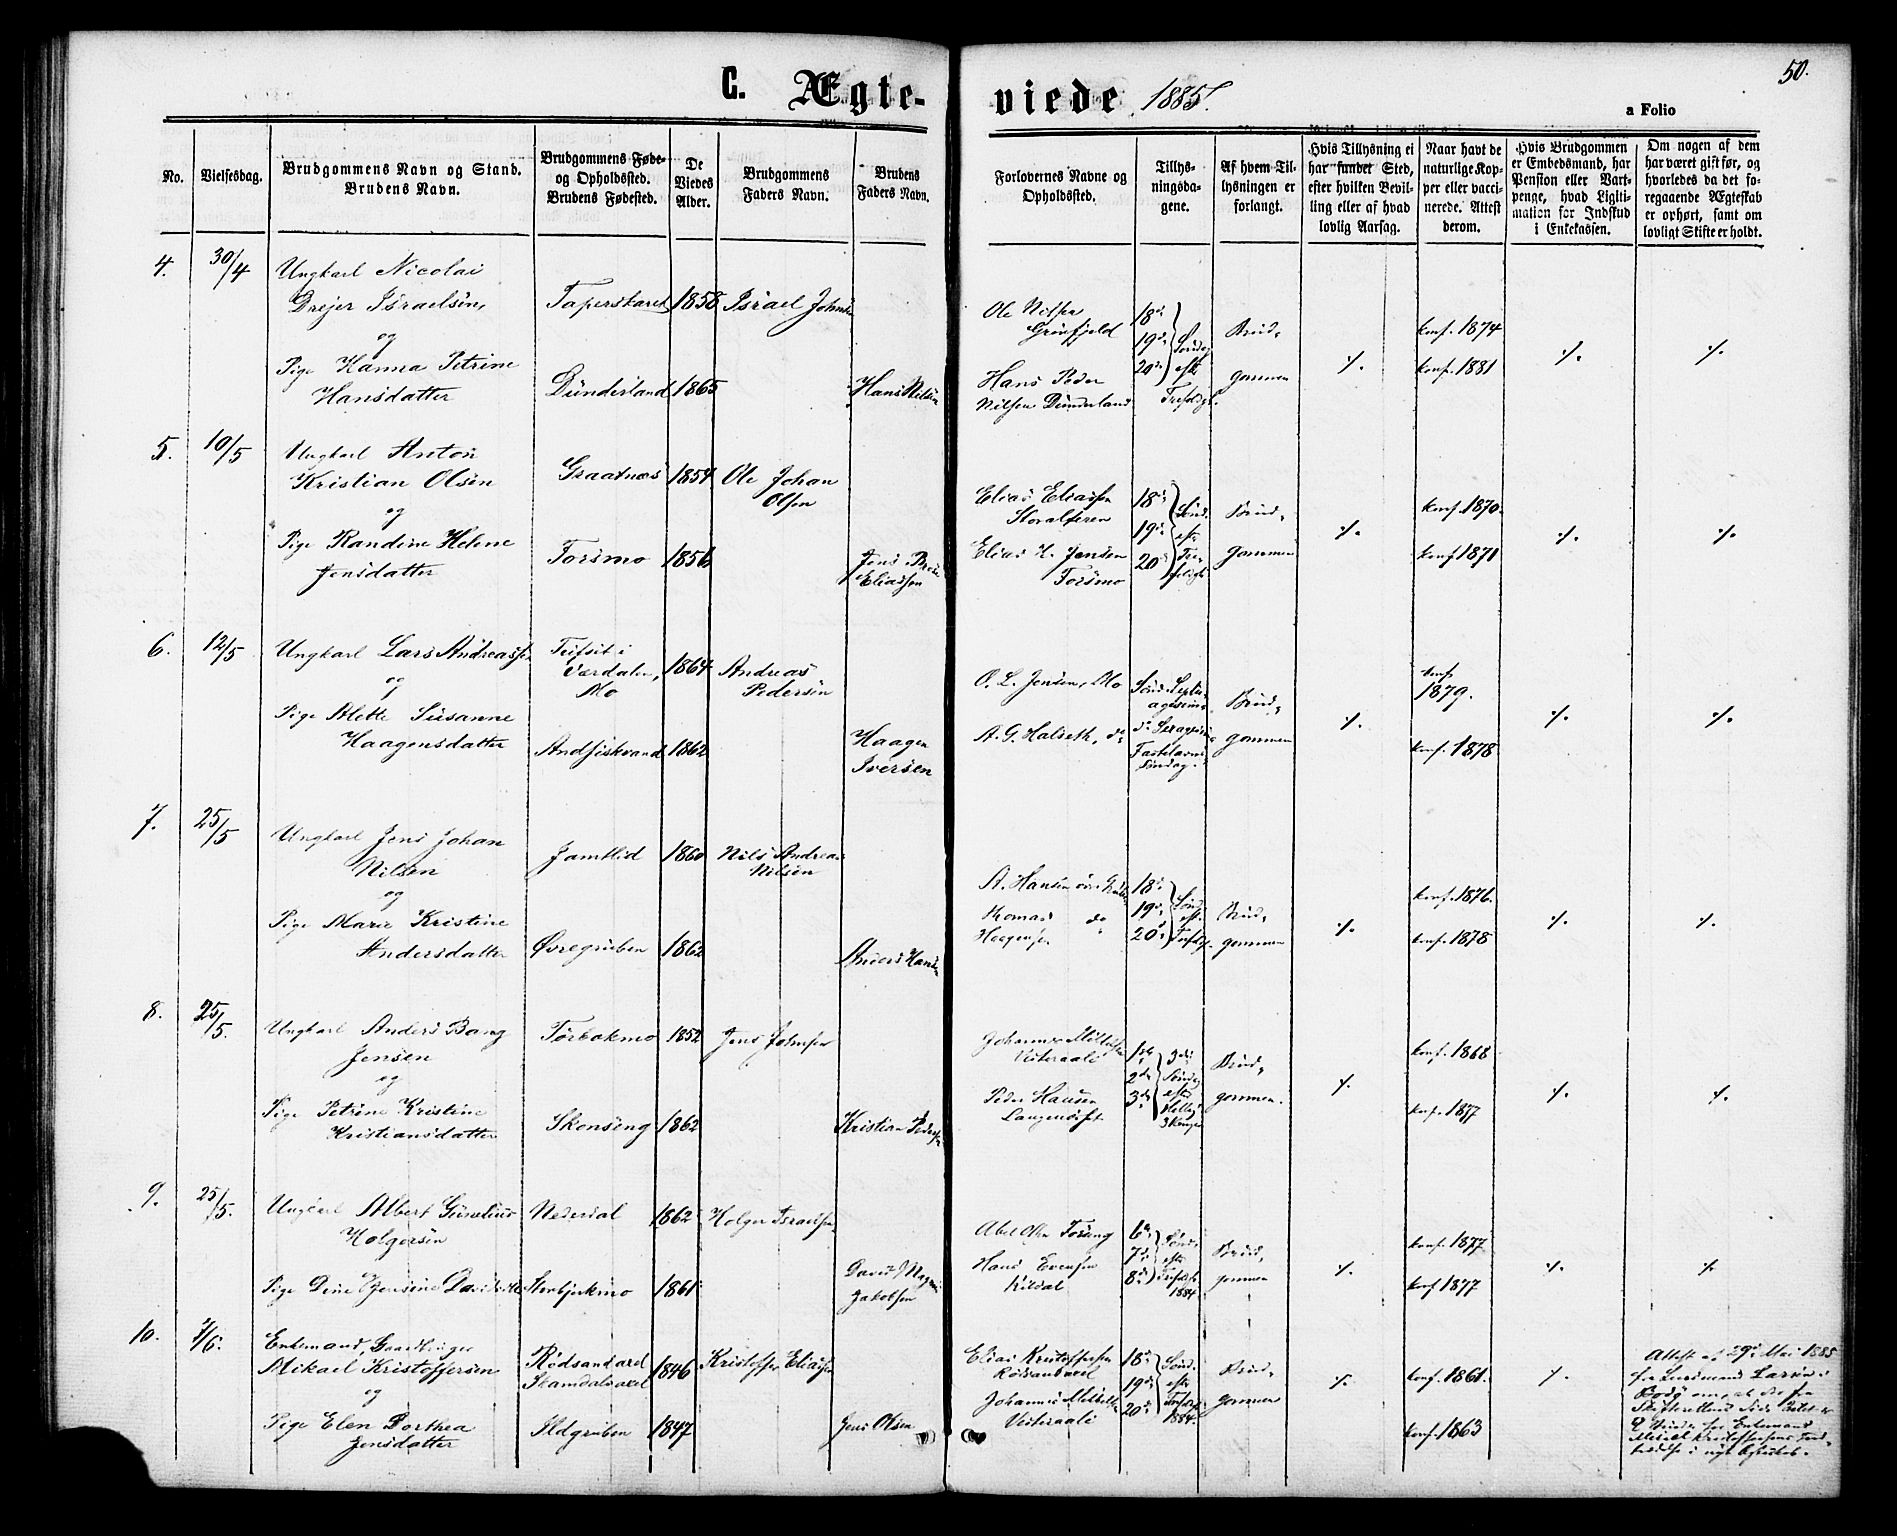 C. Ægte-
viede 1885.
50.
a Folio
No.
Vielsesdag.
Brudgommens Navn og Stand.
Brudens Navn.
Brudgommens Føde-
og Opholdssted.
Brudens Fødested.
De
Viedes
Alder.
Brudgommens
Faders Navn.
Brudens
Faders Navn.
Forlovernes Navne og
Opholdssted.
Tillys-
ningsda-
gene.
Af hvem Til-
lysningen er
forlangt.
Hvis Tillysning ei
har fundet Sted,
efter hvilken Bevil-
ling eller af hvad
lovlig Aarsag.
Naar havt de
naturlige Kop-
per eller vacci-
nerede. Attest
derom.
Hvis Brudgommen
er Embedsmand, har
Pension eller Vart-
penge, hvad Ligiti-
mation for Indskud
i Enkekassen.
Om nogen af dem
har været gift før, og
hvorledes da det fo-
regaaende Ægteskab
er ophørt, samt om
lovligt Skifte er holdt.
4.
30/4
Ungkarl Nicolai
Drejer Israelsen,
og
Pige Hanna Petrine
Hansdatter
Taperskaret
Dunderland
1858
1865
Israel Johnsen
Hans Nilsen
Ole Nilsen
Grønfjeld
Hans Peder
Nilsen Dunderland
18de
19de
20de
Sønd.
eft.
Trefoldigh.
Brud-
gommen
·/.
konf. 1874
konf. 1881
·/.
·/.
5.
10/5
Ungkarl Anton
Kristian Olsen
og
Pige Randine Helene
Jensdatter
Graatnæs
Forsmo
1854
1856
Ole Johan
Olsen
Jens
Eliassen
Elias Eliassen
Storalteren
Elias H. Jensen
Forsmo
18de
19de
20de
Sønd.
eft.
Brud-
gommen
·/.
konf. 1870.
konf. 1871
·/.
·/.
6.
12/5
Ungkarl Lars Andreassen
og
Pige Alette Susanne
Haagensdatter
i
Værdalen,
Mo
Andfiskvand
1864
1862
Andreas
Pedersen
Haagen
Iversen
O. L. Jensen, Mo
A. G. Halseth, do
Sønd. Septu-
agesima
Fastelavns
Søndag.
Brud-
gommen
·/.
konf.
1879.
konf. 1878
·/.
·/.
7.
25/5
Ungkarl Jens Johan
Nilsen
og
Pige Marie Kristine
Andersdatter
Jamtlid
Øvregruben
1860
1862
Nils Andreas
Nilsen
Anders Hansen
A. Hansen
Thomas do
Haagensen
18de
19de
20de
Sønd.
eft.
Trefold.
Brud-
gommen
·/.
konf. 1876.
konf. 1878
·/.
·/.
8.
25/5.
Ungkarl Anders Bang
Jensen
og
Pige Petrine Kristine
Kristiansdatter
Skonseng
1852
1862
Jens Johnsen
Kristian Pedersen
Johannes Mikkelsen
Vesteraali
Peder Hansen
1ste
2den
3die
Brud-
gommen.
·/.
konf. 1868
konf. 1877
·/.
·/.
9.
25/5.
Ungkarl Albert
Holgersen
og
Pige Dine Jensine
Nedredal
1862
1861
Holger Israelsen
David
Jakobsen
Abel Olsen
Hans Evensen
Kildal
6te
7de
8de
Sønd.
eft.
Trefold.
1884.
Brud-
gommen
·/.
konf. 1877
konf. 1877
·/.
·/.
10.
7/6.
Enkemand, Gaardbruger
Mikael Kristoffersen
og
Pige Elen Dorthea
Jensdatter
Rødsandaxel
Skamdalsaxel
Ildgruben
1846
1847
Kristoffer Eliassen
Jens Olsen
Elias Kristoffersen
Rødsandaxel
Johannes Mikkelsen
Vesteraali
18de
19de
20de
Sønd.
eft.
Trefold.
1884.
Brud-
gommen
·/.
konf. 1861.
konf. 1863
·/.
Attest af 29de Mai 1885
fra Lensmand
Bodø om, at der fra
Skifterettens Side Intet er
for Enkemand
Mikael Kristoffersens Ind-
trædelse i nyt Ægteskab.